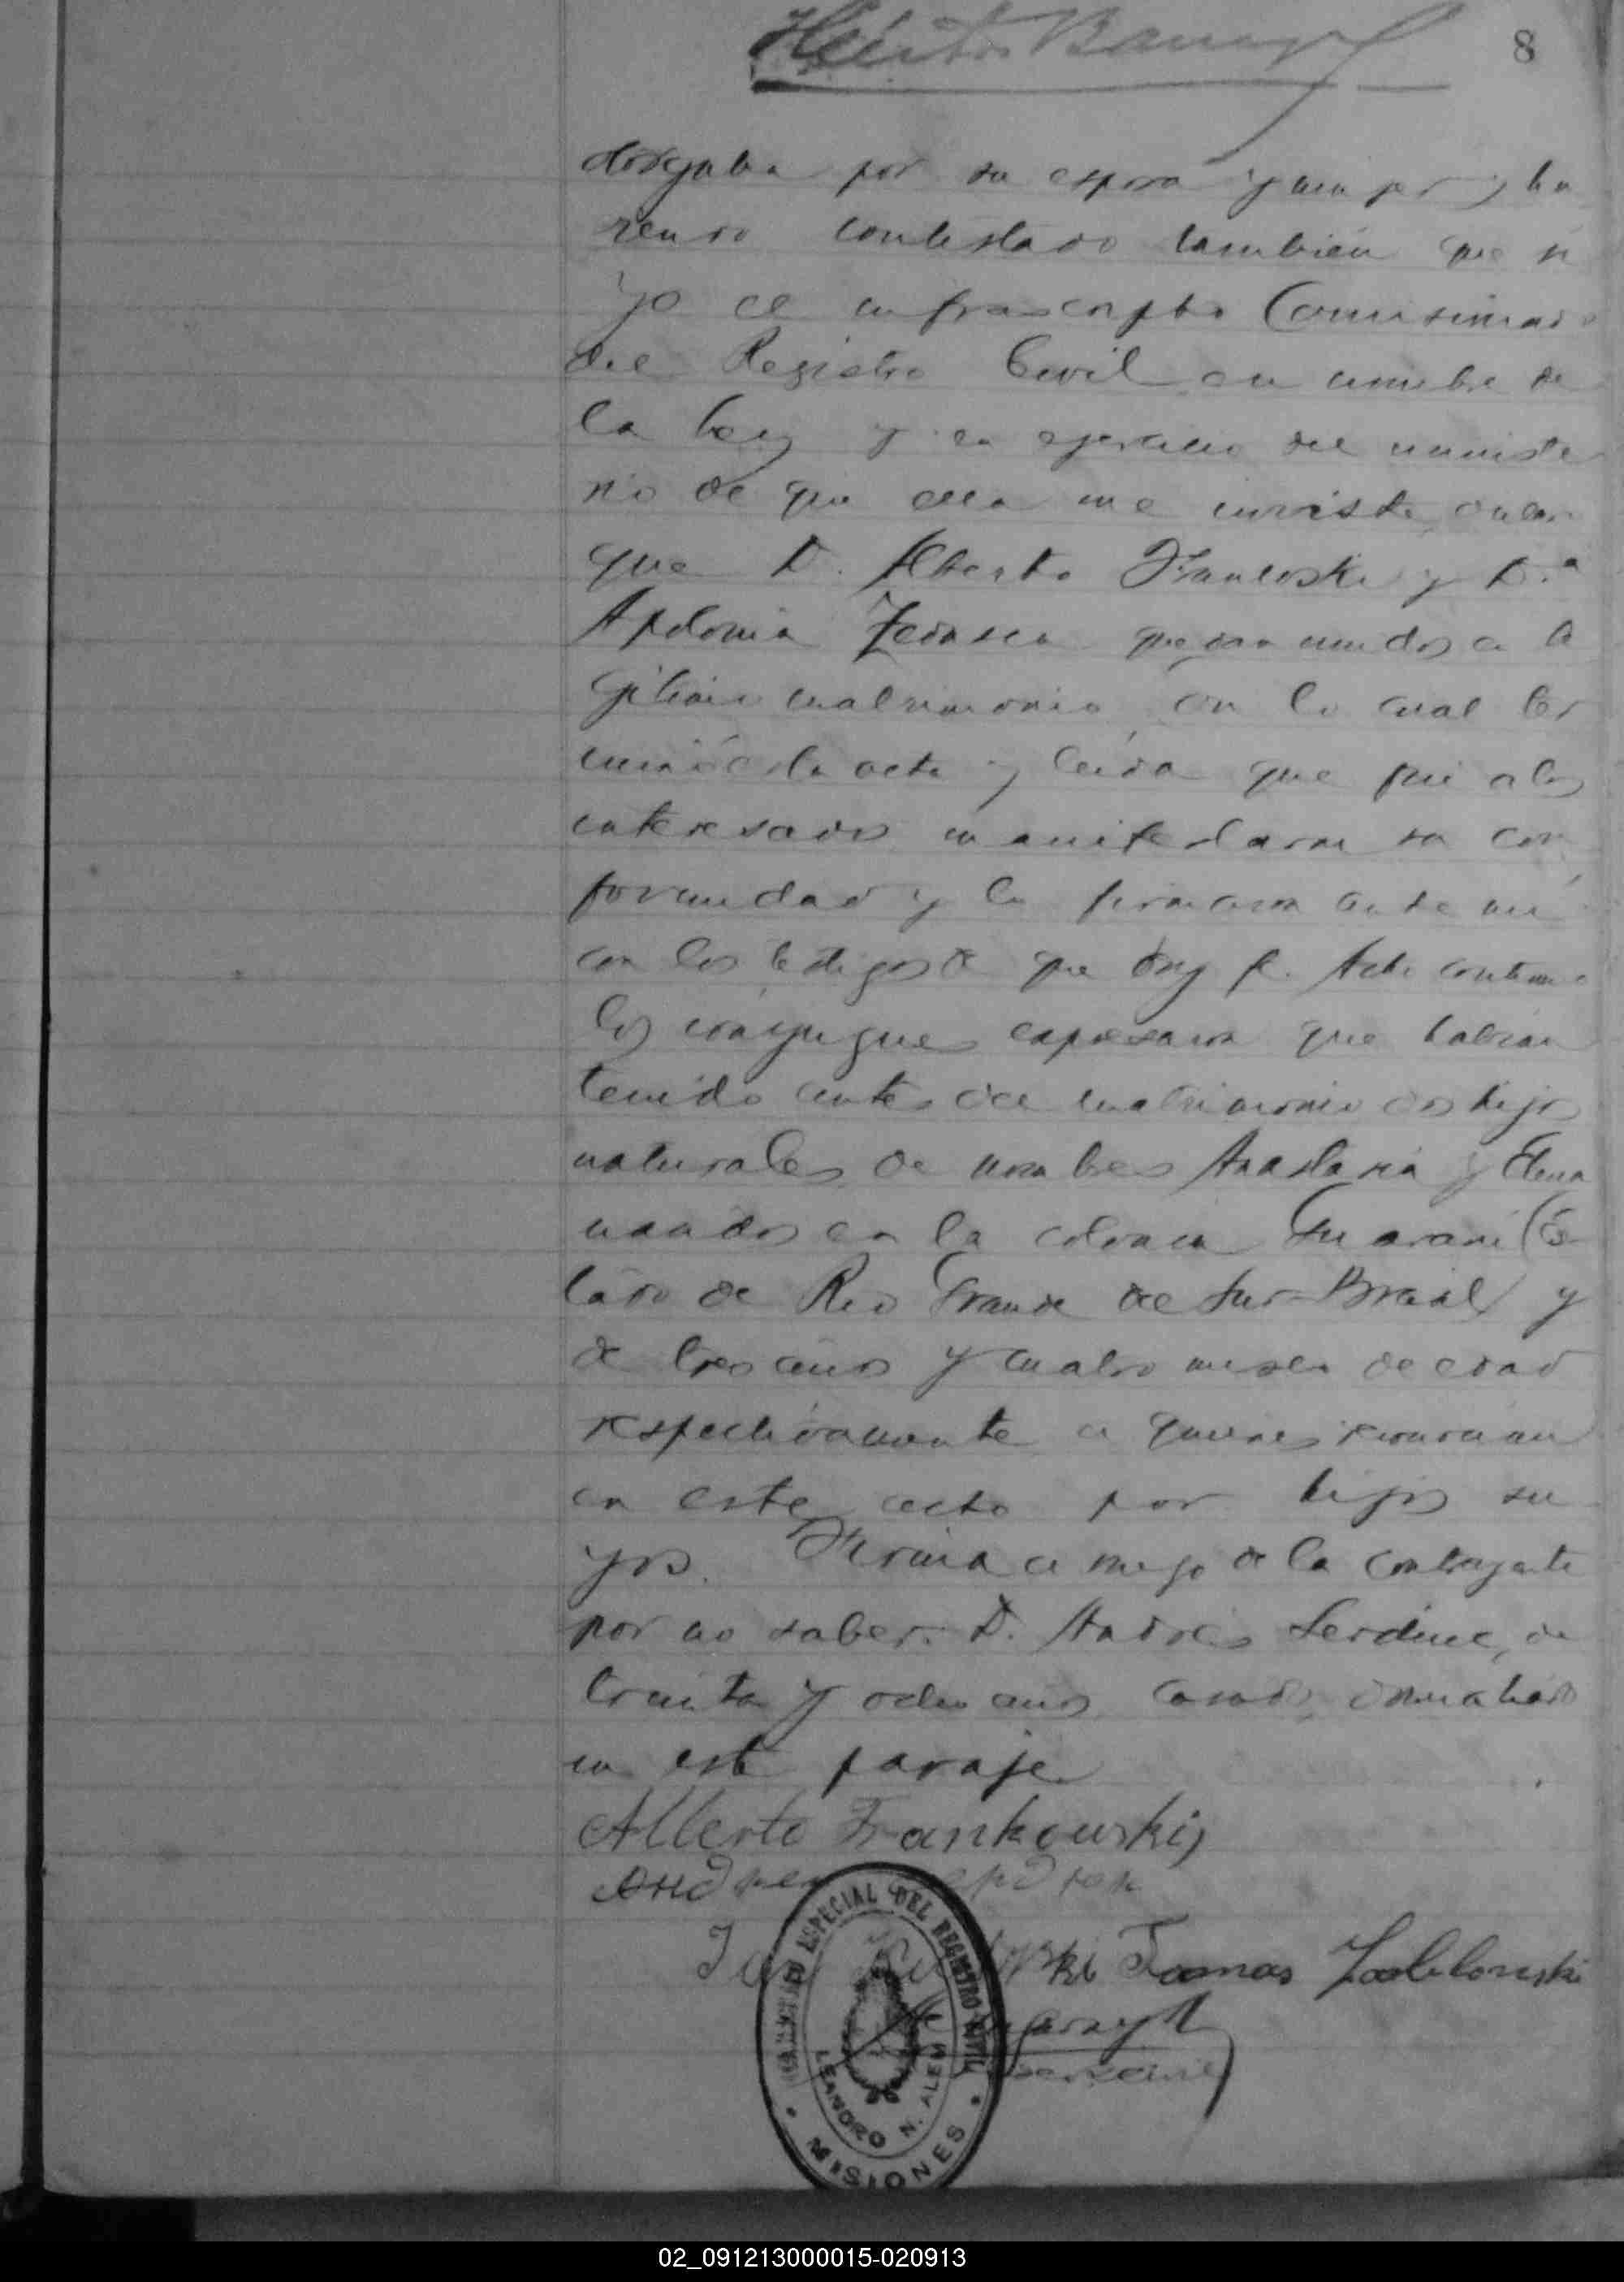 Héctor Barreyro
8
otorgaba por su esposa y mujer y ha
biendo contestado también que si
Yo el infrascripto Comisionado
del Registro Civil en nombre de
la Ley y en ejercicio del ministe
rio de que ella me inviste, declaro
que D. Alberto Frankoski y D.ª
Apolonia quedan unidos en le
gitimo matrimonio con lo cual ter
minó el acta y leida que fué a los
interesados manifestaron su con
formidad y la firmaron ante mí
con los testigos de que doy fe. Acto continuo
los conyugues expresaron que habian
tenido antes del matrimonio dos hijos
naturales de nombres Anastasia y Elena
nacidos en la colonia Guaraní (Es
tado de Rio Grande del Sur-Brasil) y
de tres años y cuatro meses de edad
respectivamente a quienes reconocian
en este acto por hijos su
yos. Firma a ruego de la contrayente
por no saber. D. Andrés de
treinta y ocho años casado, domiciliado
en este paraje
Alberto Frankowski
Tomas Zablonski
ESPECIAL DEL REGISTRO CIVIL
LEANDRO N. ALEM
MISIONES
02_091213000015-020913